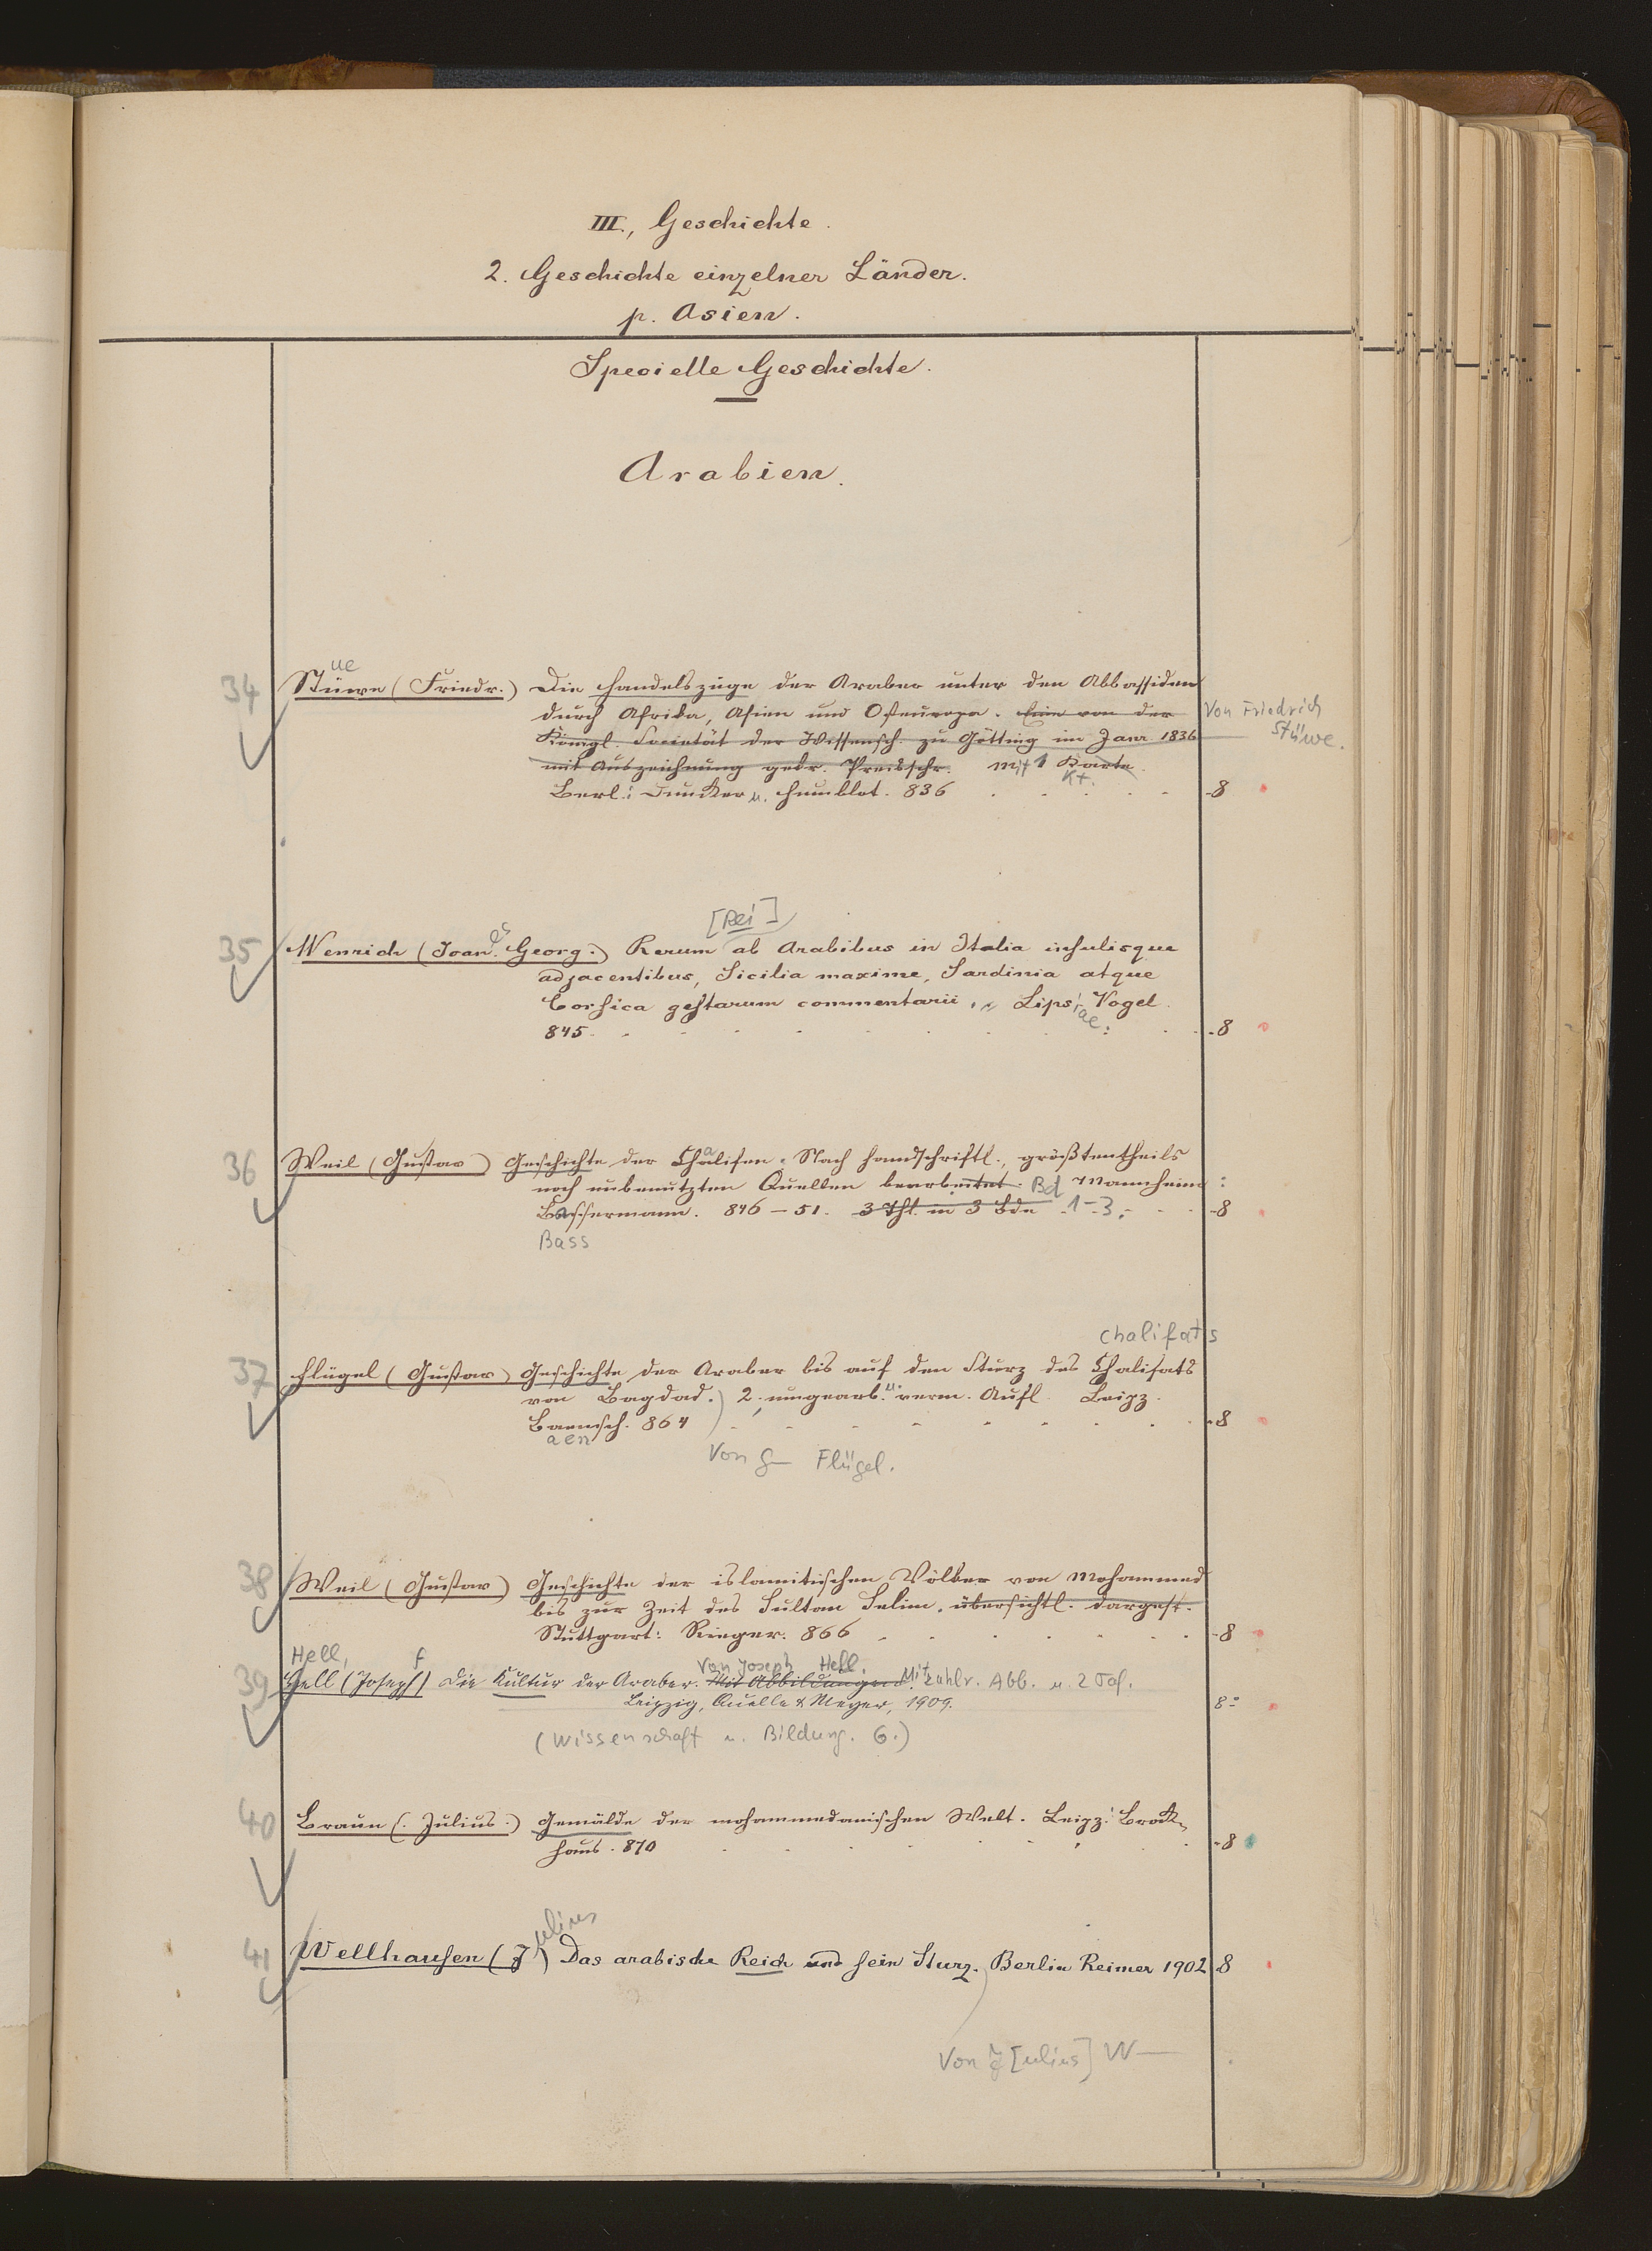 III., Geschichte.
2. Geschichte einzelner Länder.
p. Asien.
Specielle Geschichte.
Arabien.
ue
34 Stüwe (Friedr.) Die Handelszüge der Araber unter den Abbassiden
durch Afrika, Asien und Osteuropa. Eine von der
Von Friedrich
Stüwe.
Königl. Societät der Wissensch. zu Götting im Janr 1836
mit Auszeichnung gekr. Preisschr. Mit 1 Karte.
Kt.
Berl.: Duncker u. Humblot. 836 -8
[Rei]
35 Wenrich (Joan. Georg.) Rerum ab Arabibus in Italia insulisque
adjacentibus, Sicilia maxime, Sardinia atque
Corsica gestarum commentarii. Lips: Vogel.
iae:
845. -8
36 Weil (Gustav) Geschichte der Chalifen. Nach handschriftl., größtentheils
noch unbenutzten Quellen bearbeitet. Bd Mannheim:
Bassermann. 846-51. 3 Thl. in 3 Bdn 1-3. -8
Bass
Chalifats
37 Flügel (Gustav) Geschichte der Araber bis auf den Sturz des Chalifats
von Bagdad.) 2. umgearb. u. verm. Aufl. Leipz.
Baensch. 864 -8
aen
Von G— Flügel.
38 Weil (Gustav) Geschichte der islamitischen Völker von Mohammed
bis zur Zeit des Sultan Selim. übersichtl. dargest.
Stuttgart: Rieger. 866 -8
Hell, f Von Joseph Hell.
39 Hell (Joseph) Die Kultur der Araber. Mit Abbildungen. Mit zahlr. Abb. u. 2 Taf.
Leipzig, Quelle & Meyer, 1909. 8°
(Wissenschaft u. Bildung. 6.)
40 Braun (Julius) Gemälde der mohammedanischen Welt. Leipz: Brock-
haus. 870 -8
ulius
41 Wellhausen (J) Das arabische Reich und sein Sturz. Berlin Reimer 1902 8
Von J[ulius] W—